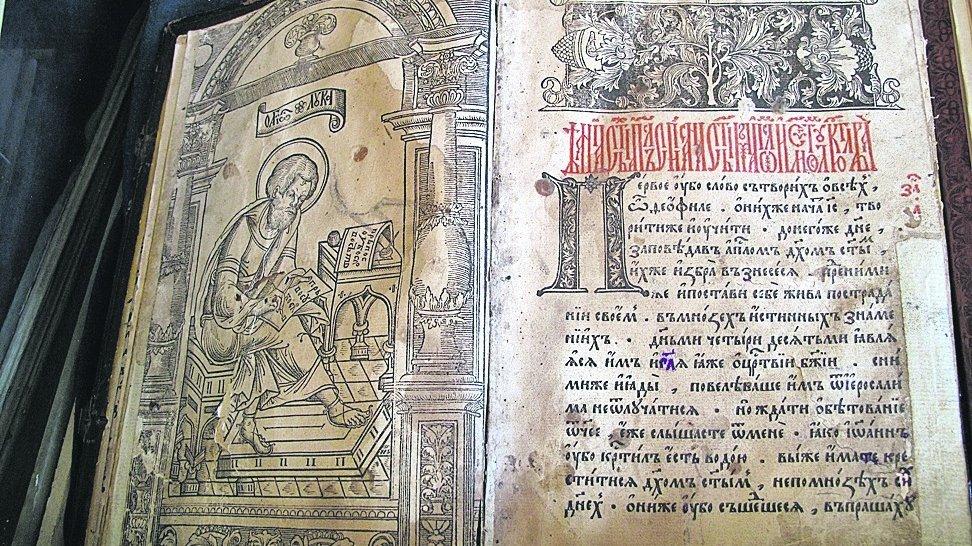 ЛУКА
Первое оубо слово сътворихъ овсѣх̾,
ѿ дѳофиле. онихже нача іс҃, тво
ритиже иоучити. донегоже дн҃е,
заповѣдавъ ап҃лом дх҃омъ ст҃ы
ихже избра възнесеся. преними
же ипостави себе жива пострада
нїи своем̾. въмнозехъ истинныхъ знаме
нїихъ. дн҃ьми четыри десятьми ꙗвлѧ
ѧсѧ имъ иꙗже ѡцр҃твїи бж҃їи. сни
миже иꙗды, повелѣваше имъ ѿїеросали
ма неѿлучатисѧ. но ждати обѣтованїе
ѿч҃ее еже слышасте ѿмене. ꙗко їѡаннъ
оубо кр҃тилъ есть водою. выже имате кре
ститисѧ дх҃омъ ст҃ымъ, непомнозѣхъ си҃
дн҃ех̾. ониже оубо съшедшесѧ, въпрашахꙋ